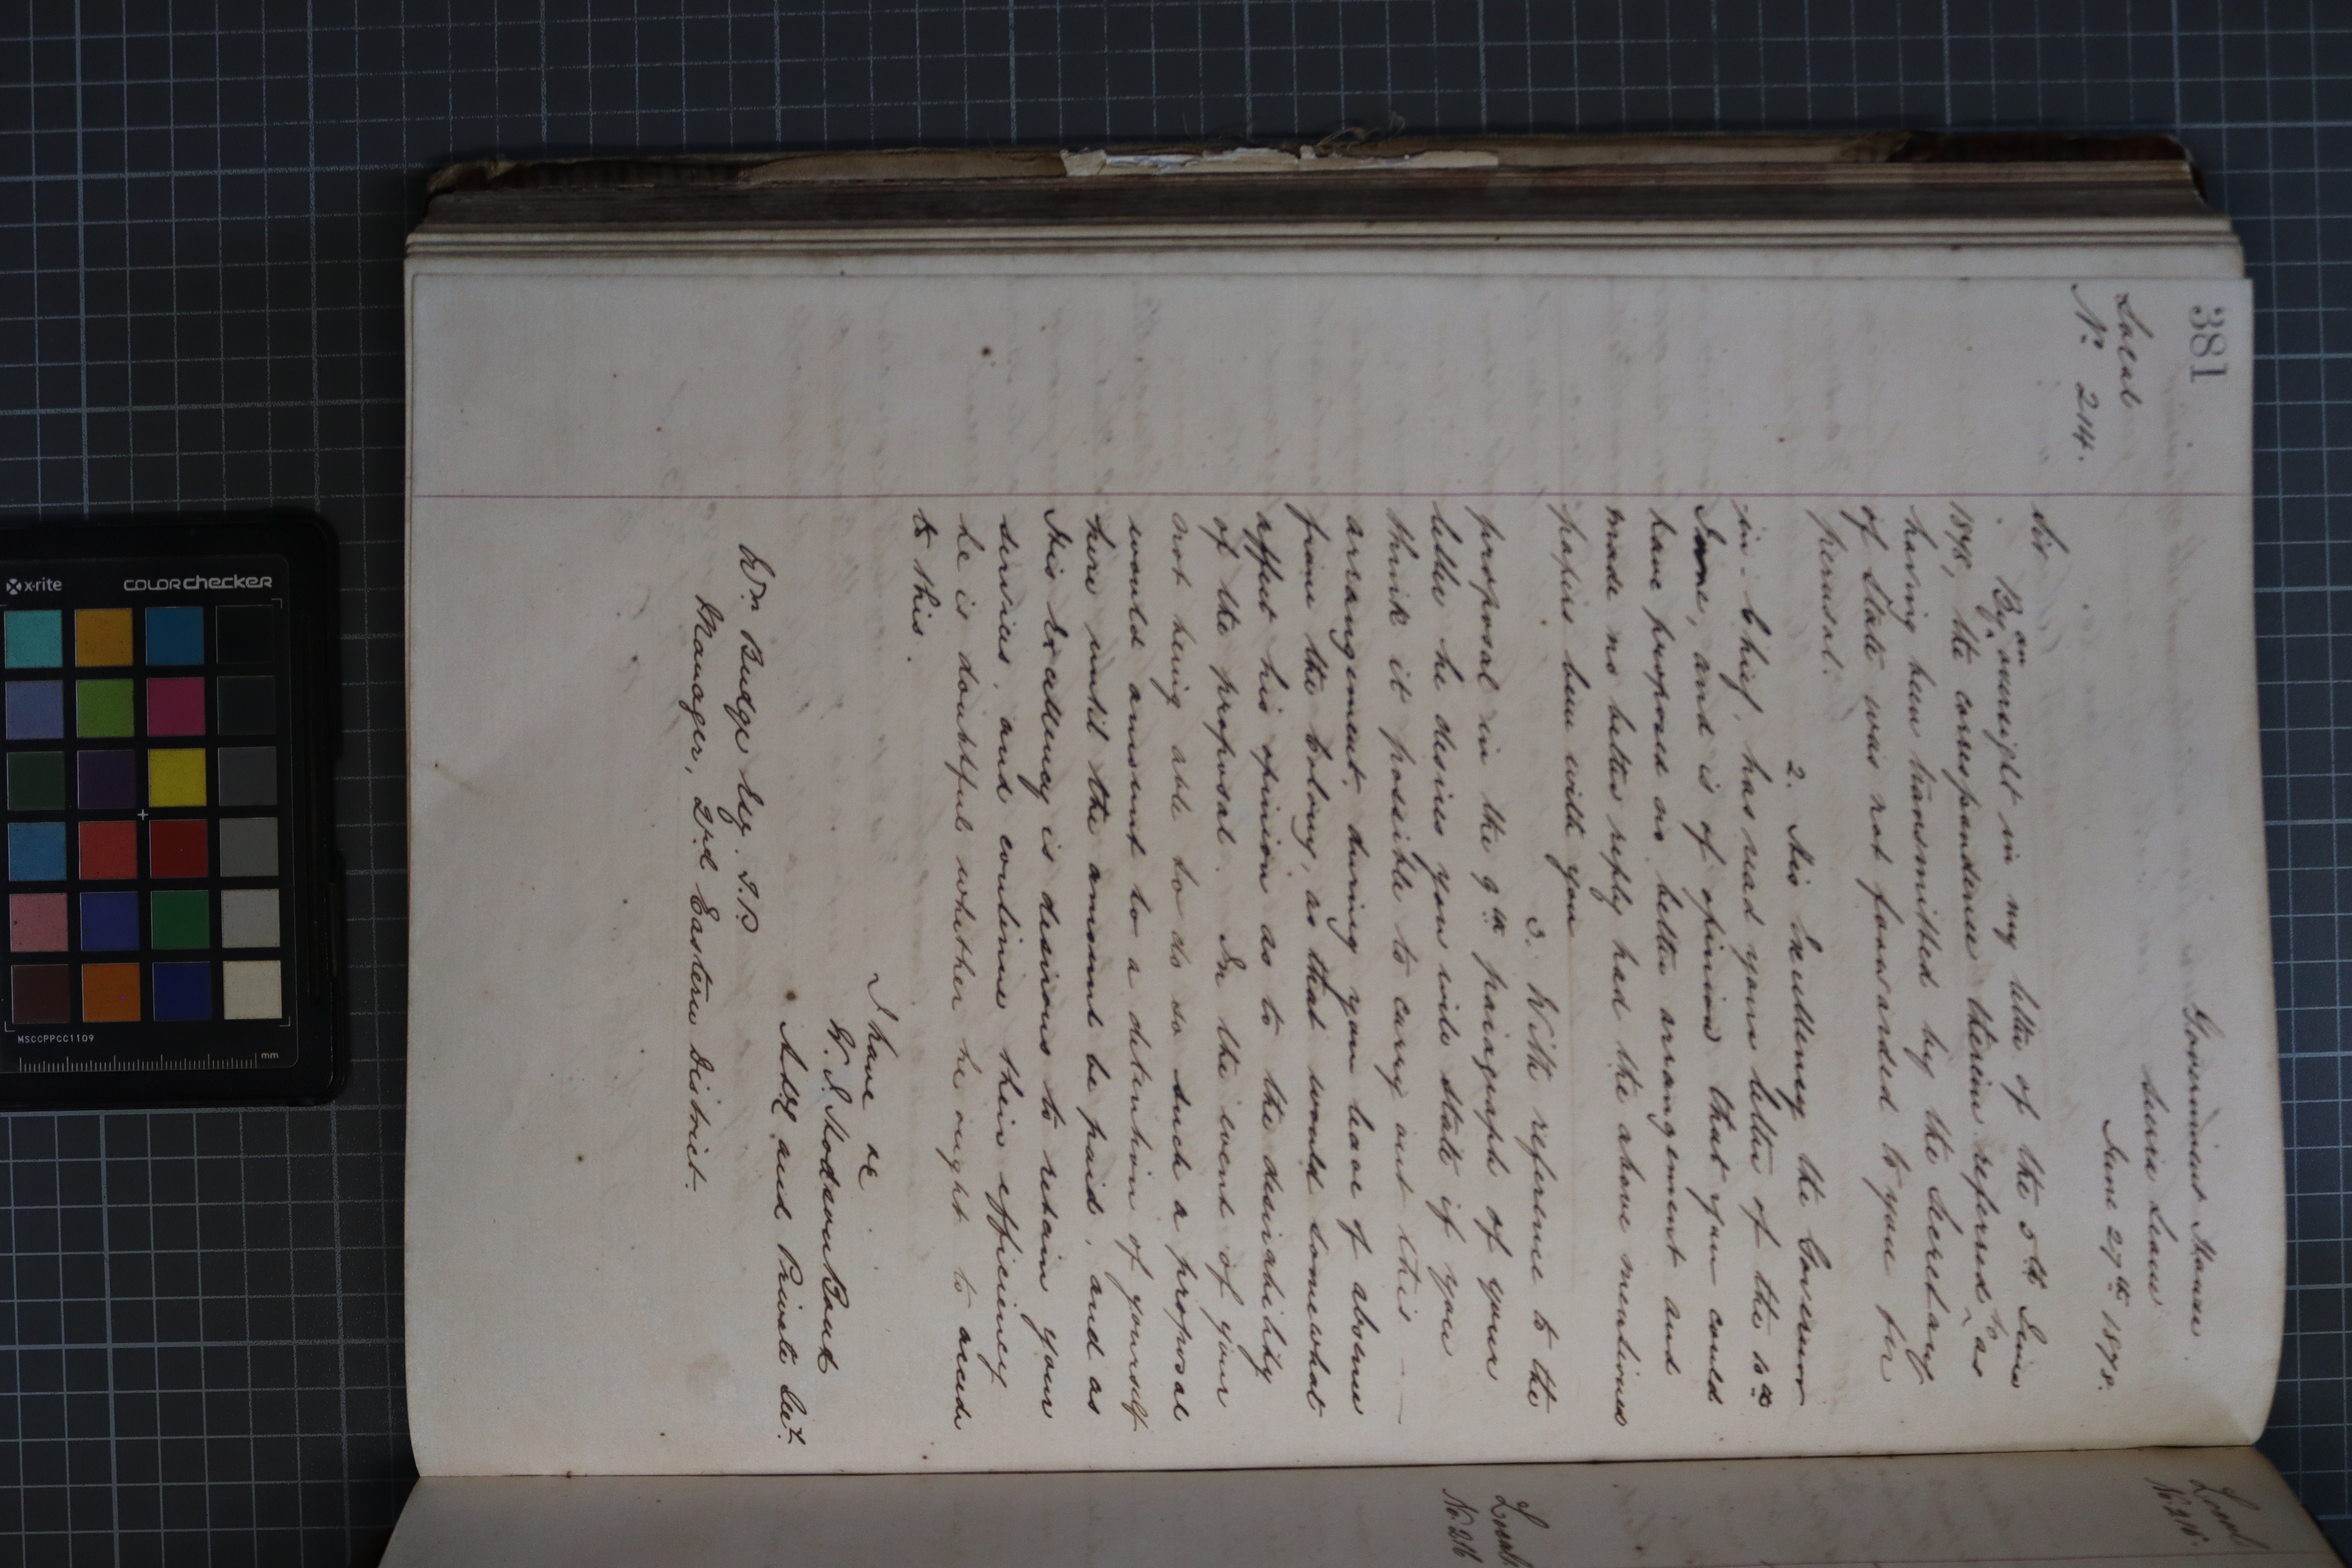 381
Local
No. 214.
Government House
Sierra Leone
June 27th 1878.
Sir
By an oversight in my letter of the 5th June
1878, the correspondence therein referred to as
having been transmitted by the Secretary
of State was not forwarded to you for
perusal.
2. His Excellency the Governor
in-Chief, has read your letter of the 10th
June, and is of opinion that you could
have proposed no better arrangement and
made no better reply had the above mentioned
papers been with you
3. With reference to the
proposal in the 9th paragraph of your
letter he desires you will state if you
think it possible to carry out this
arrangement, during your leave of absence
from the Colony, as that would somewhat
affect his opinion as to the desirability
of the proposal. In the event of your
not being able to do so such a proposal
would amount to a detention of yourself
here until the amount be paid, and as
His Excellency is desirous to retain your
services, and continue their efficiency
he is doubtful whether he ought to accede
to this.
I have &c
Actg and Private Sect.
Wm Budge Esq. J.P.
Manager, 2nd Eastern District.
Local
No. 216.
Local.
No. 216
x·rite
colorchecker
MSCCPPCC1109
mm